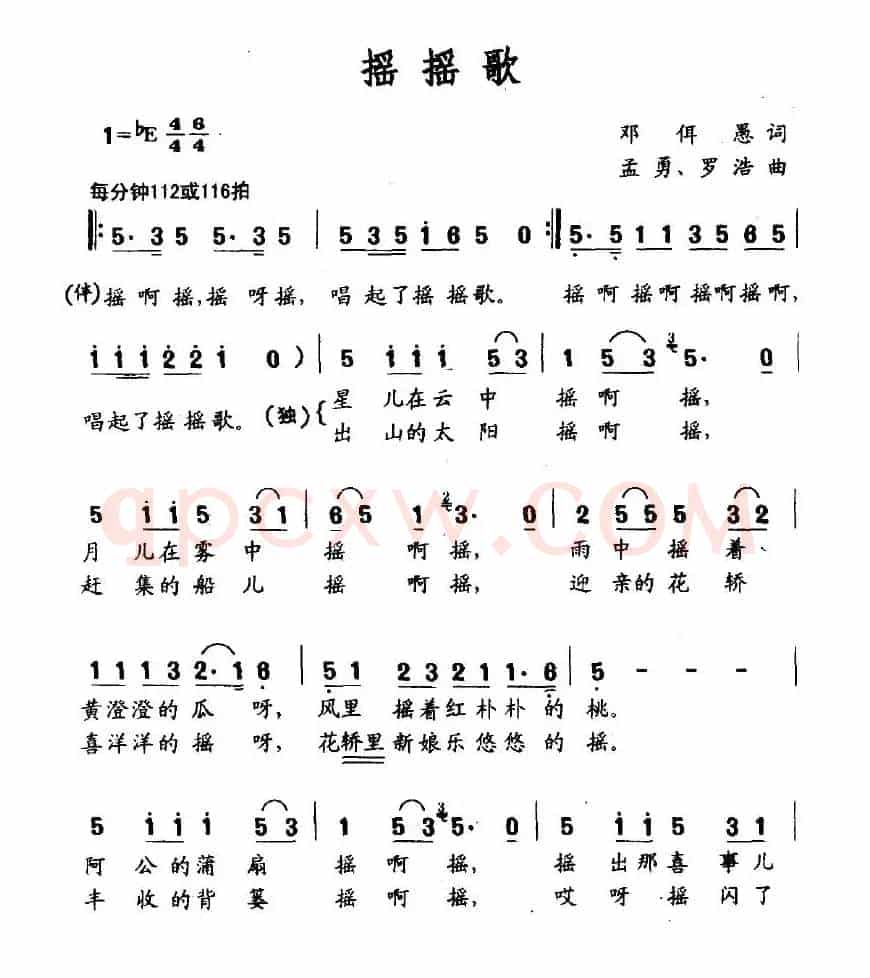 摇摇歌
1=♭E 4/4 6/4
邓佴愚词
孟勇、罗浩曲
每分钟112或116拍
‖: 5· 3 5 5· 3 5 | 5 3 5 i 6 5 0 :‖ 5· 5 1 1 3 5 6 5 |
(伴)摇啊摇,摇呀摇, 唱起了摇摇歌。 摇啊摇啊摇啊摇啊,
i i i 2 2 i 0 ) | 5 i i i 5 3 | 1 5 3 5· 0
唱起了摇摇歌。(独){星儿在云中 摇啊摇,
出山的太阳 摇啊摇,
5 i i 5 3 1 | 6 5 i 3· 0 | 2 5 5 5 3 2 |
月儿在雾中 摇啊摇, 雨中摇着、
赶集的船儿 摇啊摇, 迎亲的花轿
1 1 1 3 2· 1 6 | 5 1 2 3 2 1 1· 6 | 5 - - - |
黄澄澄的瓜呀, 风里摇着红朴朴的桃。
喜洋洋的摇呀, 花轿里新娘乐悠悠的摇。
5 i i i 5 3 | 1 5 3 5· 0 | 5 i i 5 3 1 |
阿公的蒲扇 摇啊摇, 摇出那喜事儿
丰收的背篓 摇啊摇, 哎呀摇闪了
qpcxw.COM